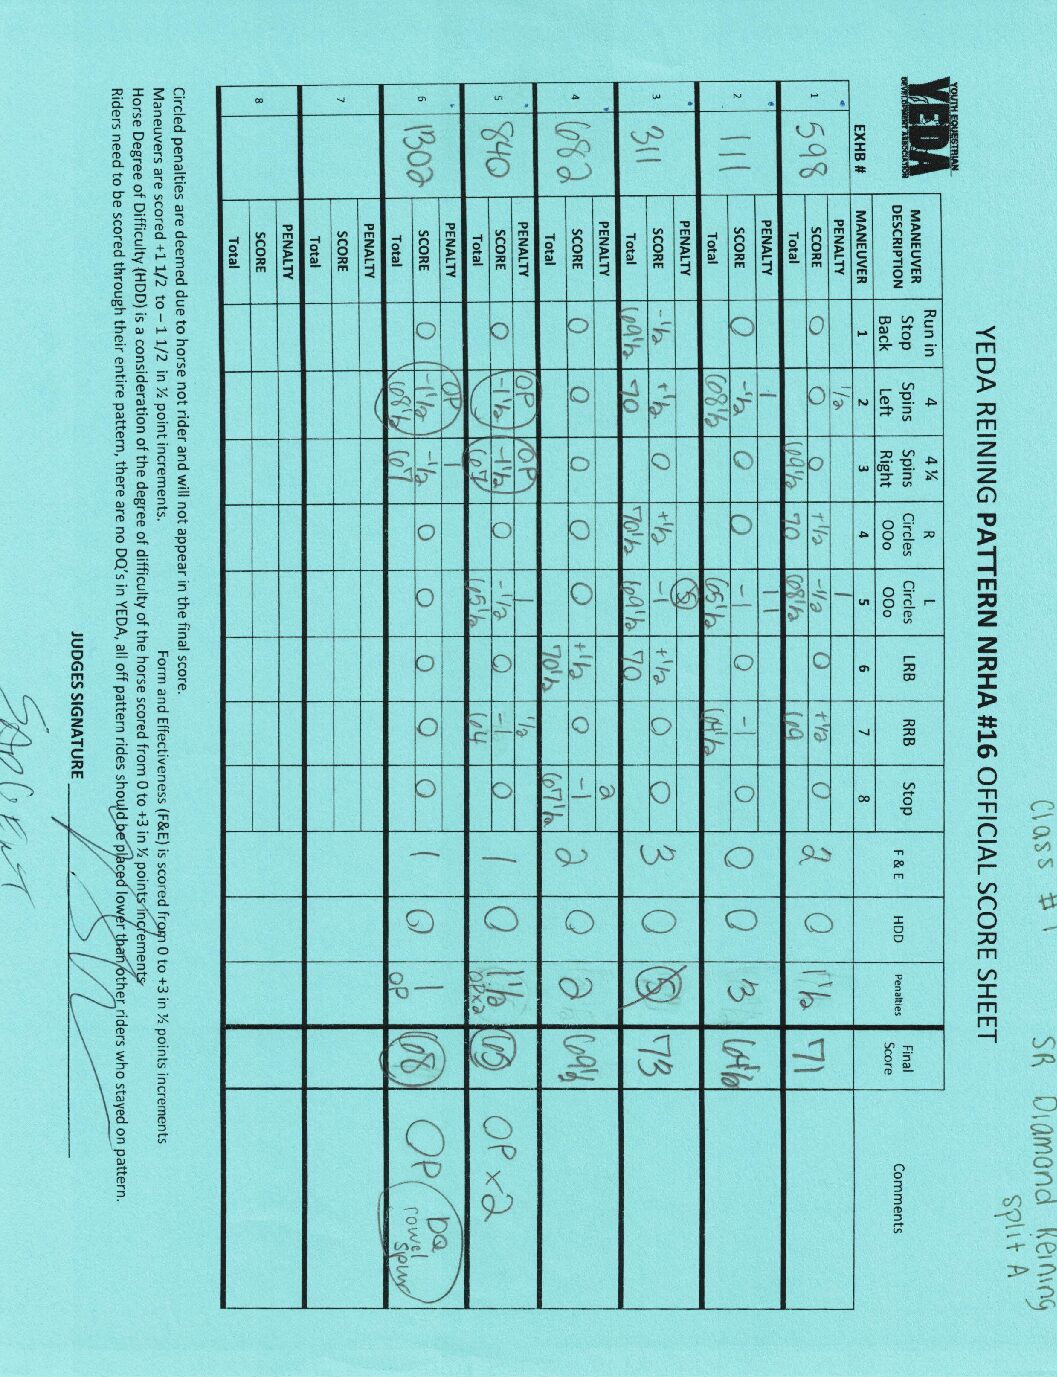 Class #1 SR Diamond Reining
Split A
YEDA REINING PATTERN NRHA #16 OFFICIAL SCORE SHEET
YOUTH EQUESTRIAN
YEDA
DEVELOPMENT ASSOCIATION
EXHB # MANEUVER DESCRIPTION Run in Stop Back 4 Spins Left 4 ¼ Spins Right R Circles OOo L Circles OOo LRB RRB Stop F & E HDD Penalties Final Score Comments
MANEUVER 1 2 3 4 5 6 7 8
1 598 PENALTY 1/2 1
SCORE 0 0 0 +1/2 -1/2 0 +1/2 0 2 0 1 1/2 71
Total 69 1/2 70 68 1/2 69
2 111 PENALTY 1 1 1
SCORE 0 -1/2 0 0 -1 0 -1 0 0 0 3 64 1/2
Total 68 1/2 65 1/2 64 1/2
3 311 PENALTY 5
SCORE -1/2 +1/2 0 +1/2 -1 +1/2 0 0 3 0 5 73
Total 69 1/2 70 70 1/2 69 1/2 70
4 682 PENALTY 2
SCORE 0 0 0 0 0 +1/2 0 -1 2 0 2 69 1/2
Total 70 1/2 67 1/2
5 840 PENALTY OP OP 1 1/2
SCORE 0 -1 1/2 -1 1/2 0 -1/2 0 -1 0 1 0 1 1/2 OPx2 65 OP x 2
Total 67 65 1/2 64
6 1302 PENALTY OP 1
SCORE 0 -1 1/2 -1/2 0 0 0 0 0 1 0 1 OP 68 OP DQ rowel spur
Total 68 1/2 67
7 PENALTY
SCORE
Total
8 PENALTY
SCORE
Total
Circled penalties are deemed due to horse not rider and will not appear in the final score.
Maneuvers are scored +1 1/2 to – 1 1/2 in ½ point increments. Form and Effectiveness (F&E) is scored from 0 to +3 in ½ points increments
Horse Degree of Difficulty (HDD) is a consideration of the degree of difficulty of the horse scored from 0 to +3 in ½ points increments
Riders need to be scored through their entire pattern, there are no DQ's in YEDA, all off pattern rides should be placed lower than other riders who stayed on pattern.
JUDGES SIGNATURE